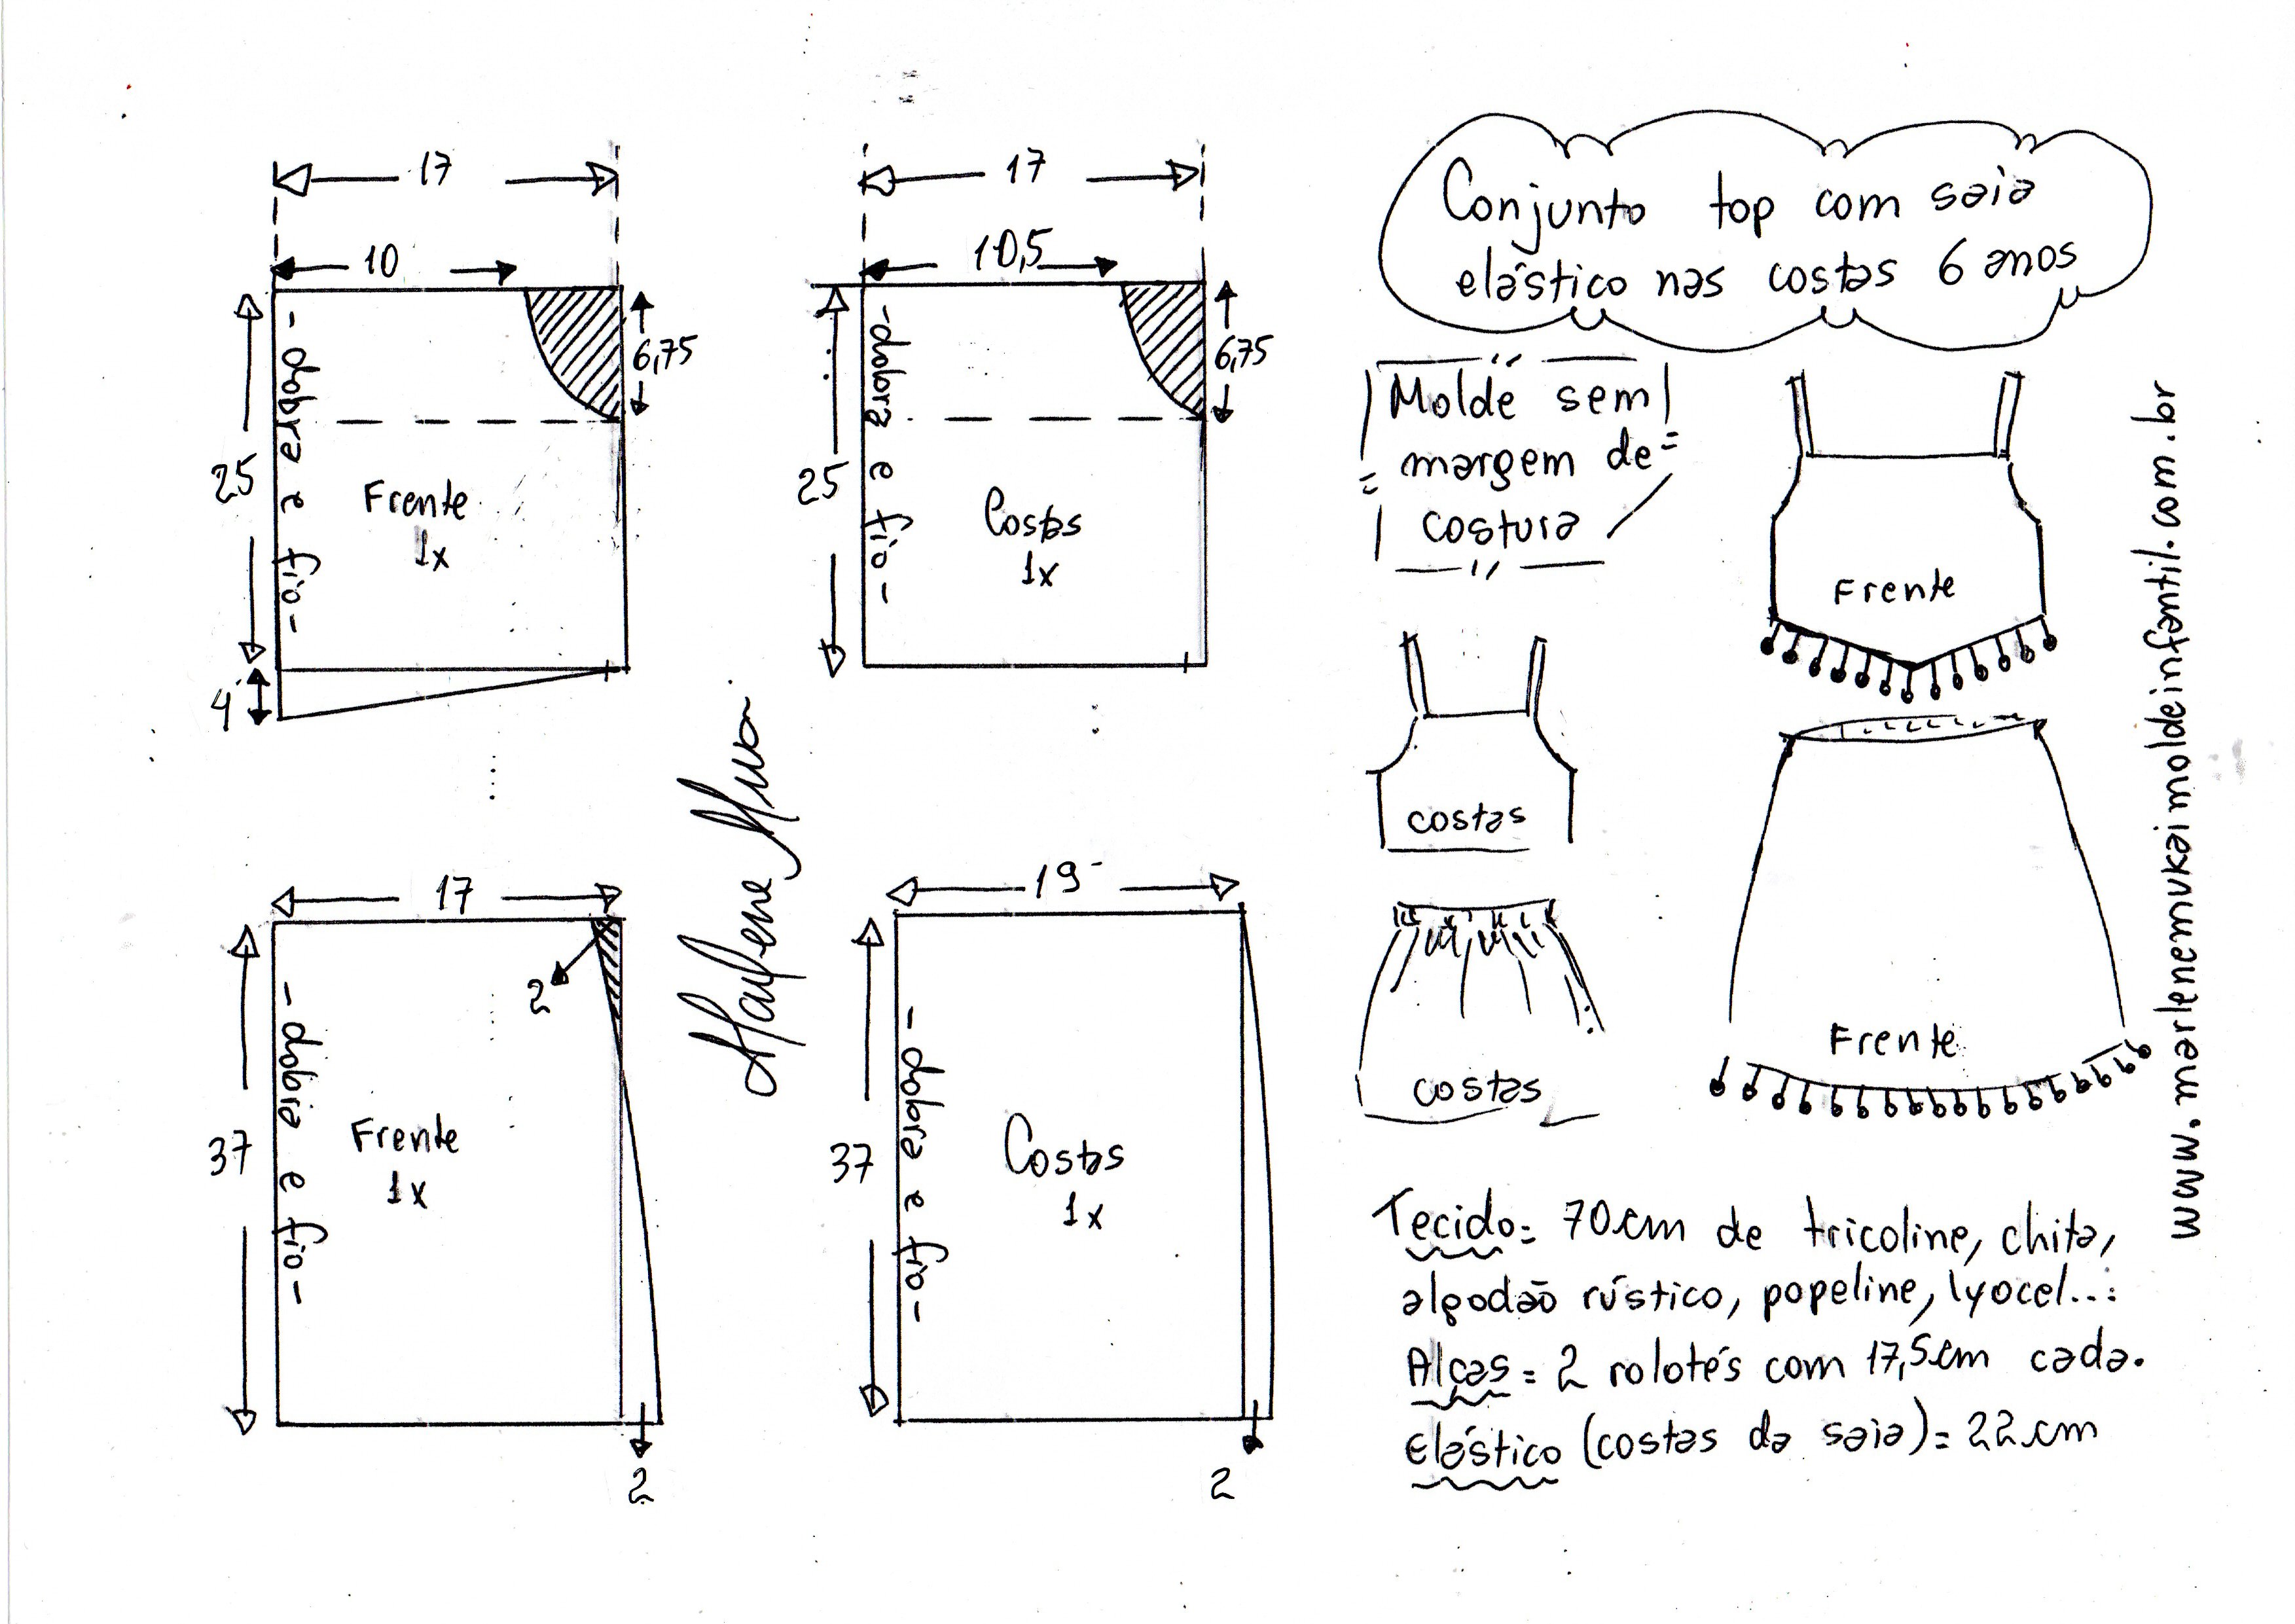 17
10
6,75
25
- dobra e fio -
Frente
1x
4
17
10,5
6,75
25
- dobra e fio -
Costas
1x
17
2
37
- dobra e fio -
Frente
1x
2
19
37
- dobra e fio -
Costas
1x
2
Conjunto top com saia
elástico nas costas 6 anos
Molde sem
margem de
costura
Frente
costas
Frente
costas
www.marlenemukaimoldeinfantil.com.br
Tecido= 70cm de tricoline, chita,
algodão rústico, popeline, lyocel...
Alças = 2 rolotés com 17,5cm cada.
Elástico (costas da saia) = 22cm